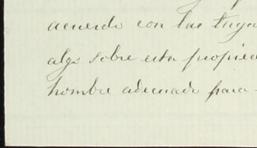 acuerdo con las tuya
algo sobre esta propieda
hombre adecuado para